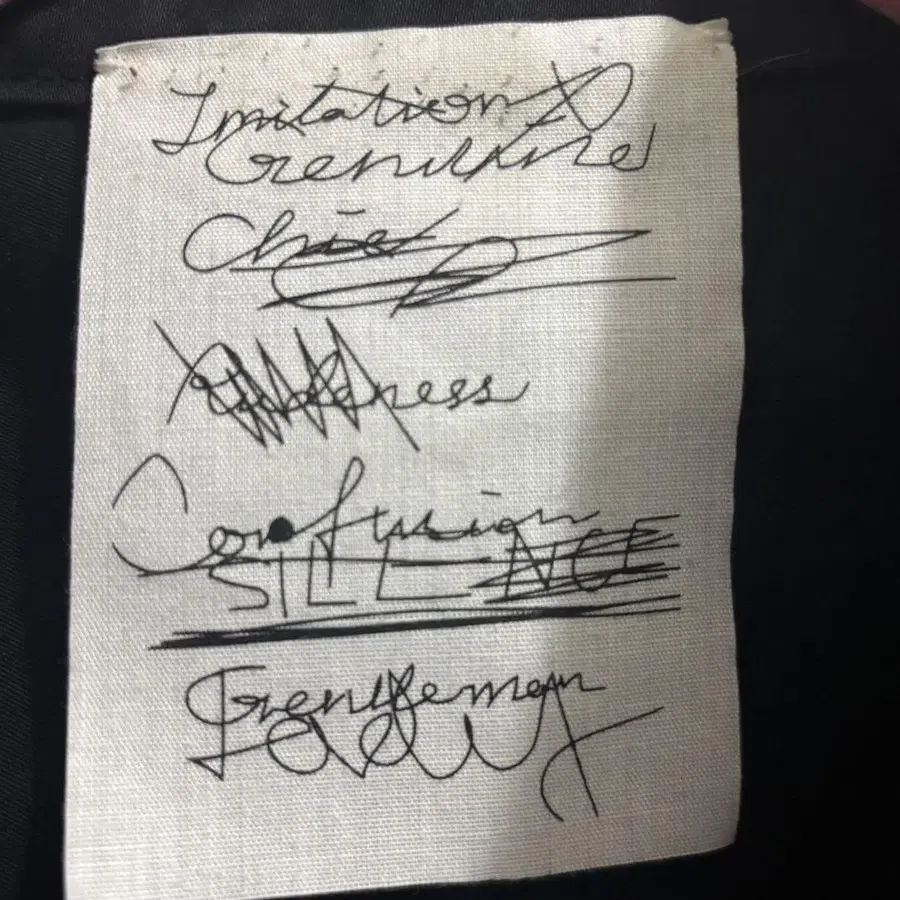 Imitation
Genuine
Chief
ness
Confusion
SILLENCE
Gentleman